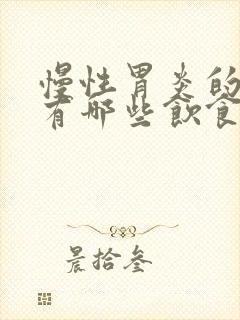 慢性胃炎的
有哪些饮食
晨拾叁